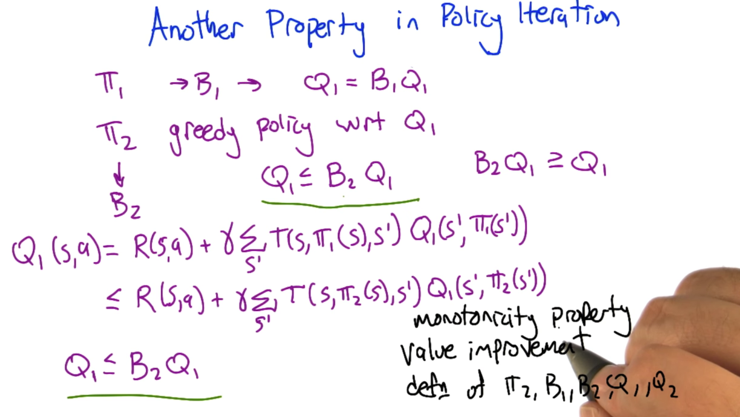 Another Property in Policy Iteration
π₁ → B₁ → Q₁ = B₁Q₁
π₂ greedy policy wrt Q₁
↓
B₂
Q₁ ≤ B₂ Q₁
B₂Q₁ ≥ Q₁
Q₁(s,a) = R(s,a) + γ Σ_s' T(s,π₁(s),s') Q₁(s',π₁(s'))
≤ R(s,a) + γ Σ_s' T(s,π₂(s),s') Q₁(s',π₂(s'))
Q₁ ≤ B₂Q₁
monotonicity property
value improvement
defn of π₂, B₁, B₂, Q₁, Q₂